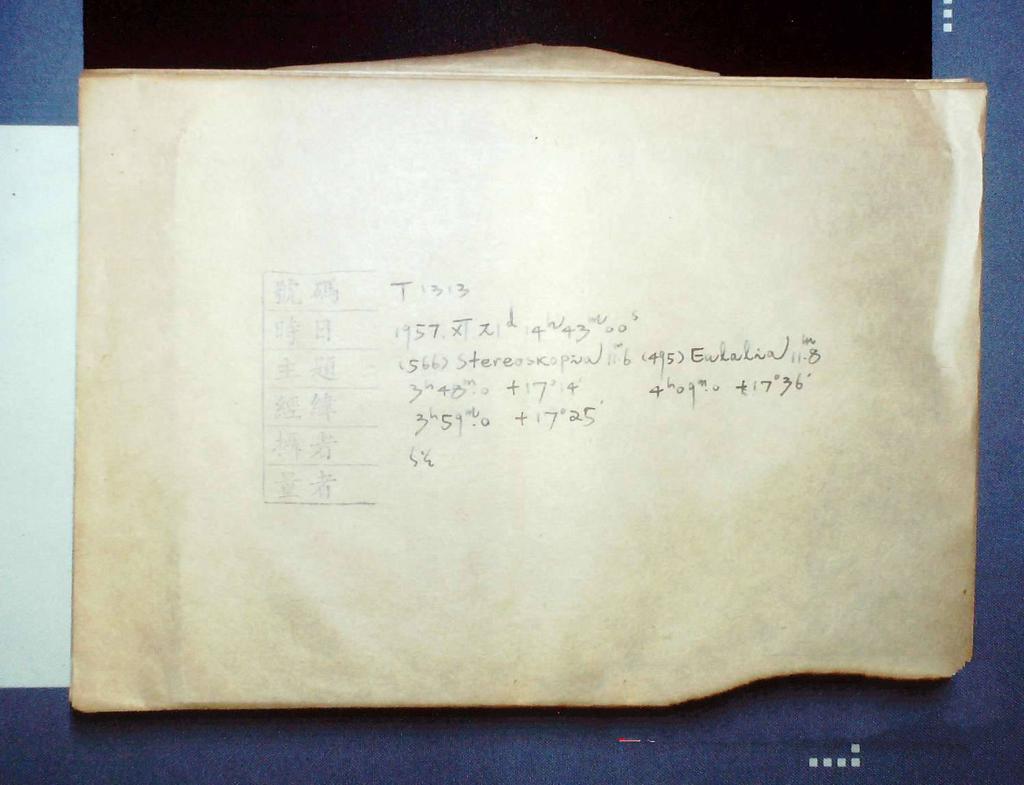 號碼 T 1313
時日 1957. XI 21ᵈ 14ʰ 43ᵐ 00ˢ
主題 (566) Stereoskopia 11ᵐ.6 (495) Eulalia 11ᵐ.8
3ʰ48ᵐ.0 +17°14′ 4ʰ09ᵐ.0 +17°36′
經緯 3ʰ59ᵐ.0 +17°25′
攝者
量者